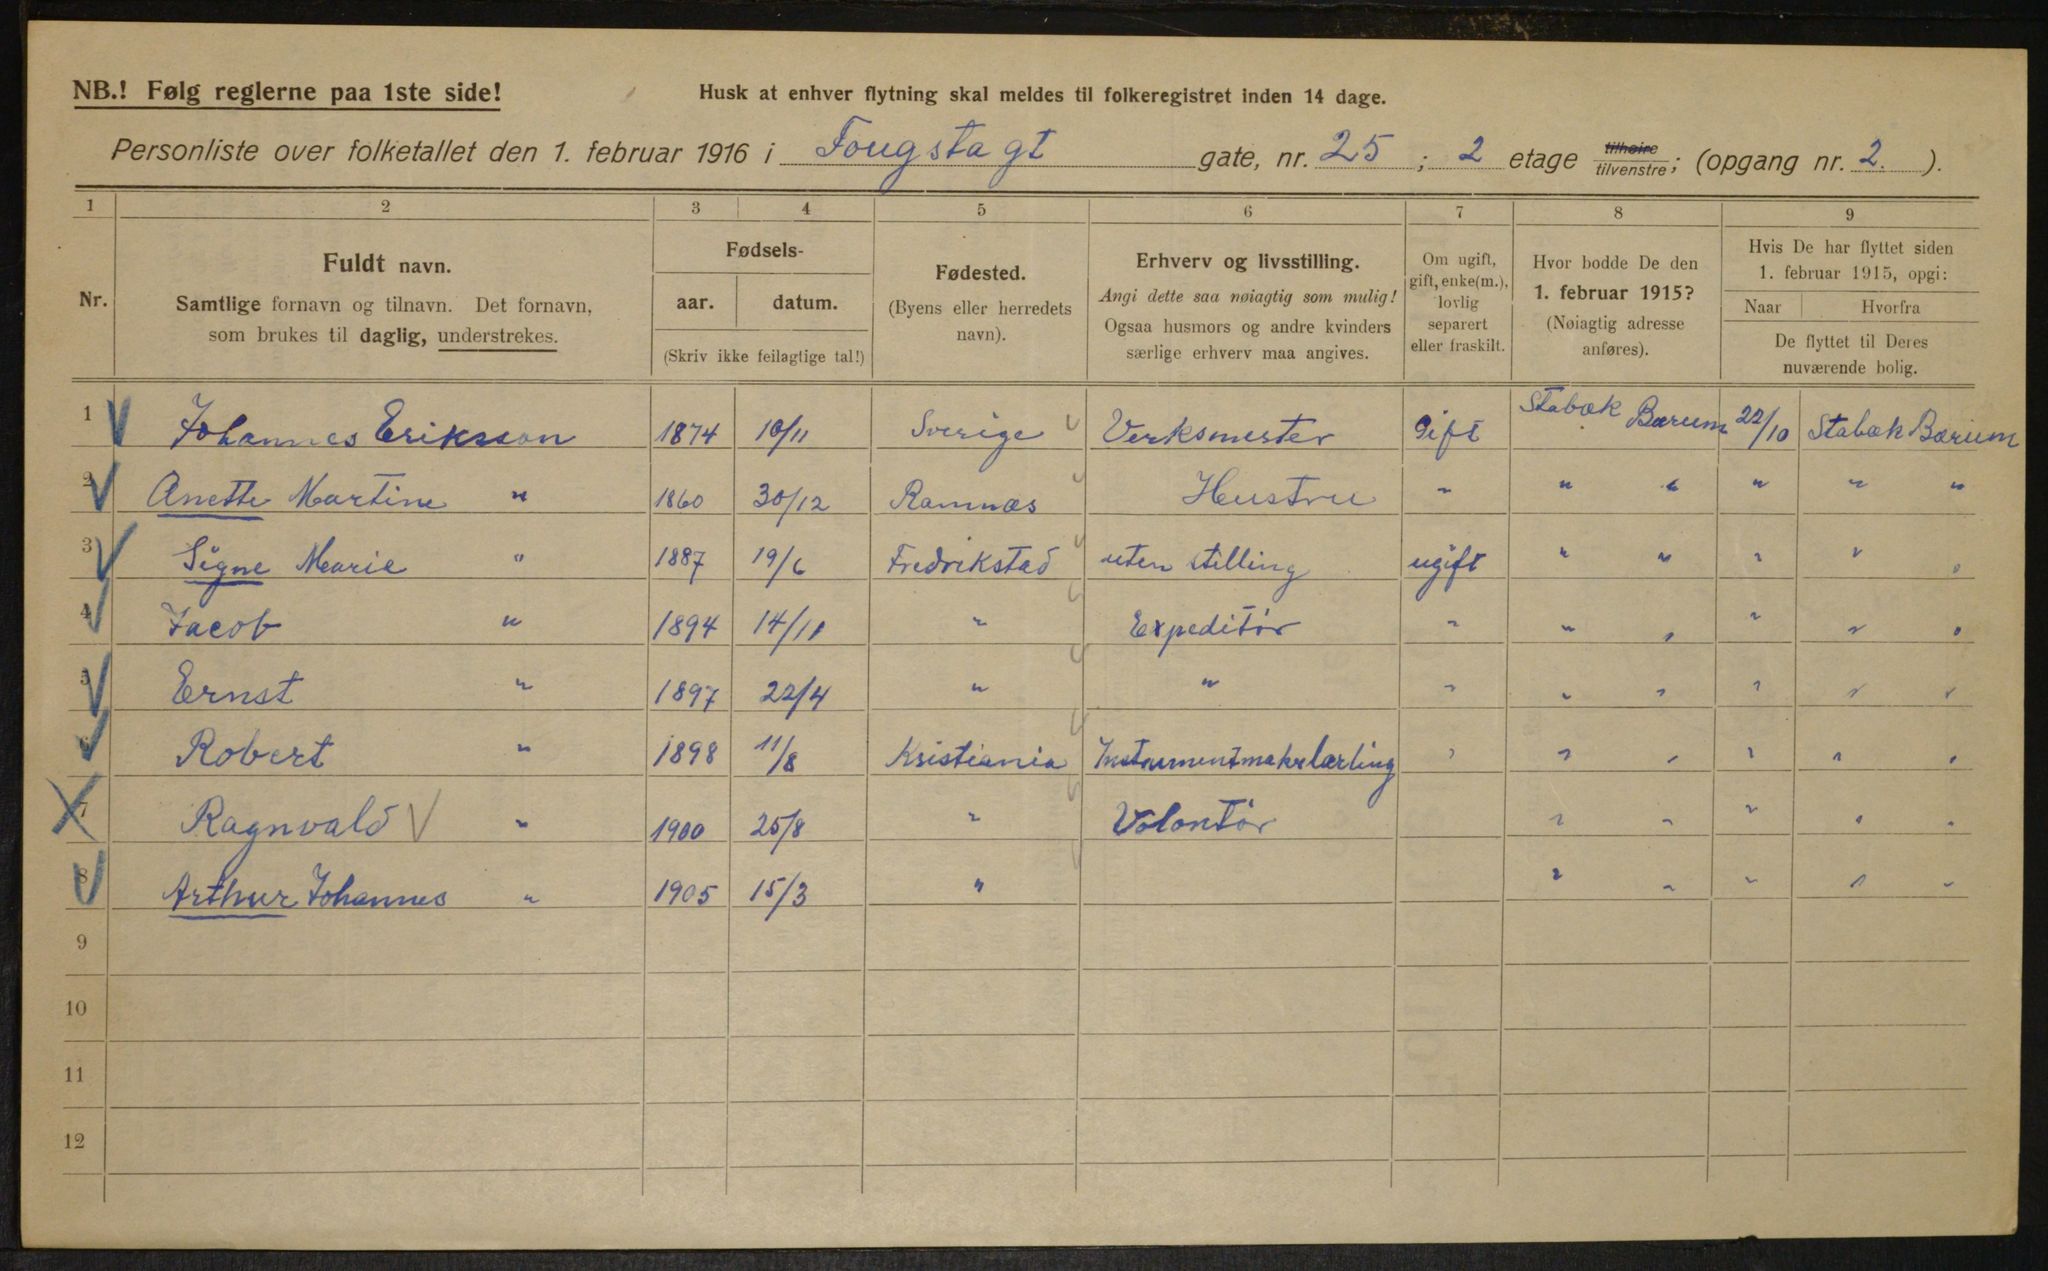 NB.! Følg reglerne paa 1ste side! Husk at enhver flytning skal meldes til folkeregistret inden 14 dage.
Personliste over folketallet den 1. februar 1916 i Fougsta gt gate, nr. 25 ; 2 etage tilhøire tilvenstre; (opgang nr. 2. ).
1 2 3 4 5 6 7 8 9
Nr.
Fuldt navn.
Samtlige fornavn og tilnavn. Det fornavn,
som brukes til daglig, understrekes.
Fødsels-
aar. datum.
(Skriv ikke feilagtige tal!)
Fødested.
(Byens eller herredets
navn).
Erhverv og livsstilling.
Angi dette saa nøiagtig som mulig!
Ogsaa husmors og andre kvinders
særlige erhverv maa angives.
Om ugift,
gift, enke(m.),
lovlig
separert
eller fraskilt.
Hvor bodde De den
1. februar 1915?
(Nøiagtig adresse
anføres).
Hvis De har flyttet siden
1. februar 1915, opgi:
Naar Hvorfra
De flyttet til Deres
nuværende bolig.
1 Johannes Eriksson 1874 10/11 Sverige Verksmester Gift Stabæk Bærum 22/10 Stabæk Bærum
2 Anette Martine " 1860 30/12 Ramnæs Hustru " " " " " "
3 Signe Marie " 1887 19/6 Fredrikstad uten stilling ugift " " " " "
4 Jacob " 1894 14/11 " Expeditør " " " " " "
5 Ernst " 1897 22/4 " " " " " " " "
6 Robert " 1898 11/8 Kristiania Instrumentmakerlærling " " " " " "
7 Ragnvald " 1900 25/8 " Volontør " " " " "
8 Arthur Johannes " 1905 15/3 " " " " " "
9
10
11
12